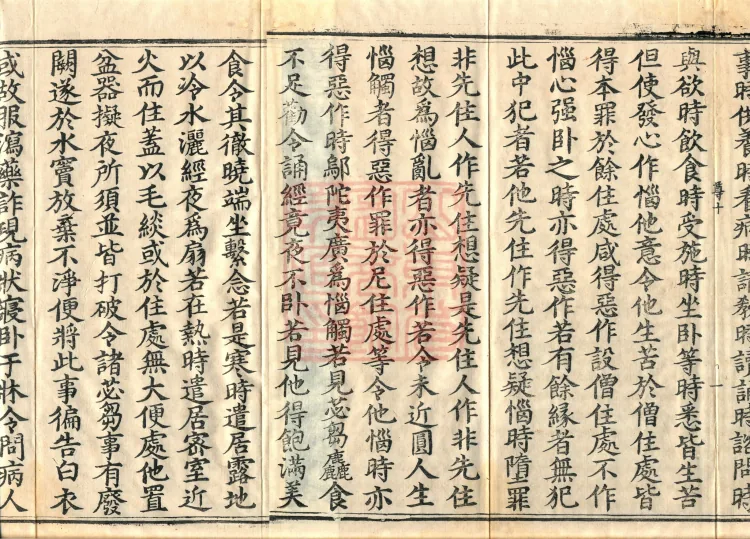 事時供養時看病時請教時讀誦時諮問時
尊十 一
與欲時飲食時受施時坐卧等時悉皆生苦
但使發心作惱他意令他生苦於僧住處皆
得本罪於餘住處咸得惡作設僧住處不作
惱心强卧之時亦得惡作若有餘緣者無犯
此中犯者若他先住作先住想疑惱時墮罪
非先住人作先住想疑是先住人作非先住
想故爲惱亂者亦得惡作若令未近圓人生
惱觸者得惡作罪於尼住處等令他惱時亦
得惡作時鄔陀夷廣爲惱觸若見苾芻麤食
不足勸令誦經竟夜不卧若見他得飽滿美
食令其徹曉端坐繫念若是寒時遣居露地
以冷水灑經夜爲扇若在熱時遣居密室近
火而住蓋以毛緂或於住處無大便處他置
盆器擬夜所須並皆打破令諸苾芻事有廢
闕遂於水竇放棄不淨便將此事徧告白衣
或故服瀉藥詐現病狀寢卧于牀令問病人